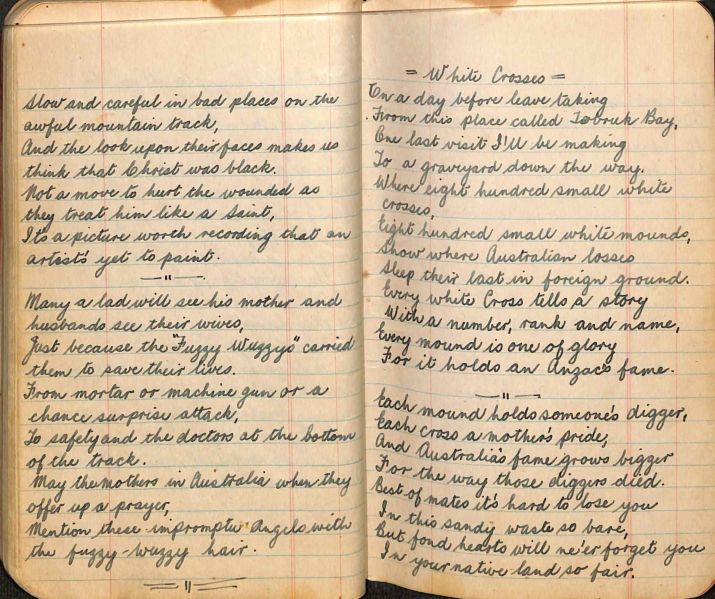 Slow and careful in bad places on the
awful mountain track,
And the look upon their faces makes us
think that Christ was black.
Not a move to hurt the wounded as
they treat him like a Saint,
Its a picture worth recording that an
artist's yet to paint.
Many a lad will see his mother and
husbands see their wives,
Just because the "Fuzzy Wuzzys" carried
them to save their lives.
From mortar or machine gun or a
chance surprise attack,
To safety and the doctors at the bottom
of the track.
May the mothers in Australia when they
offer up a prayer,
Mention these impromptu Angels with
the fuzzy-wuzzy hair.
= White Crosses =
On a day before leave taking
From this place called Tobruk Bay,
One last visit I'll be making
To a graveyard down the way.
Where eight hundred small white
crosses,
Eight hundred small white mounds,
Show where Australian losses
Sleep their last in foreign ground.
Every white Cross tells a story
With a number, rank and name,
Every mound is one of glory
For it holds an Anzacs fame.
Each mound holds someone's digger,
Each cross a mother's pride,
And Australia's fame grows bigger
For the way those diggers died.
Best of mates it's hard to lose you
In this sandy waste so bare,
But fond hearts will ne'er forget you
In your native land so fair.